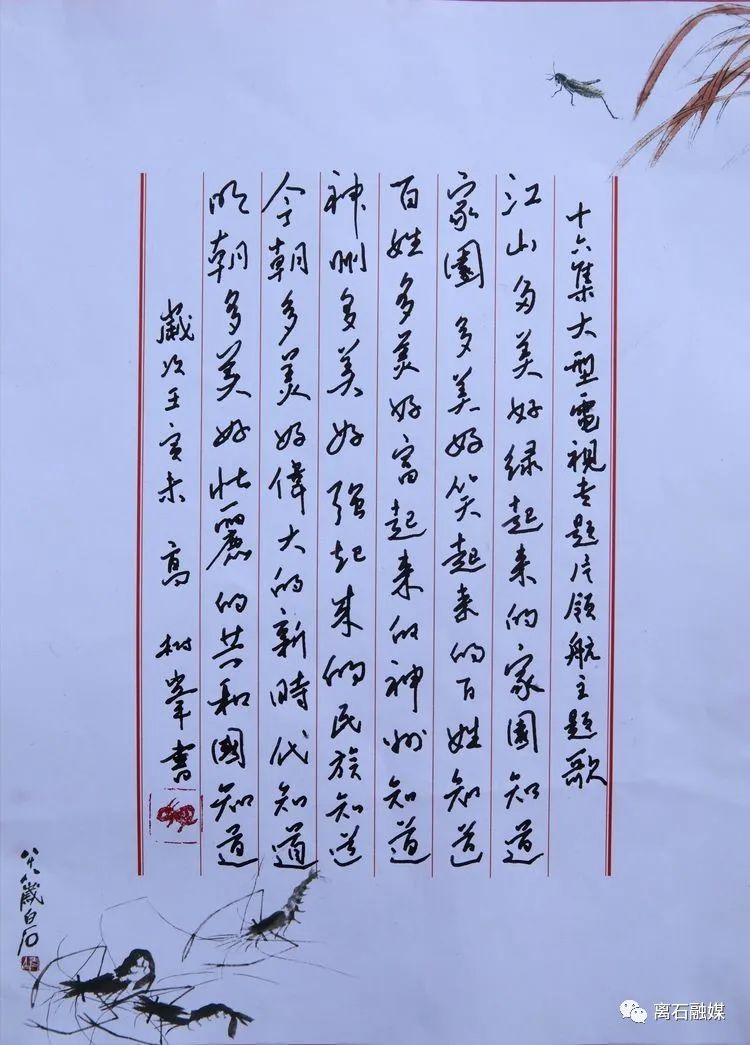 十六集大型電視专题片領航主题歌
江山多美好绿起来的家園知道
家園多美好笑起来的百姓知道
百姓多美好富起来的神州知道
神州多美好强起来的民族知道
今朝多美好偉大的新時代知道
明朝多美好壮麗的共和國知道
歲次壬寅末 高树峯書
八十八歲白石
离石融媒